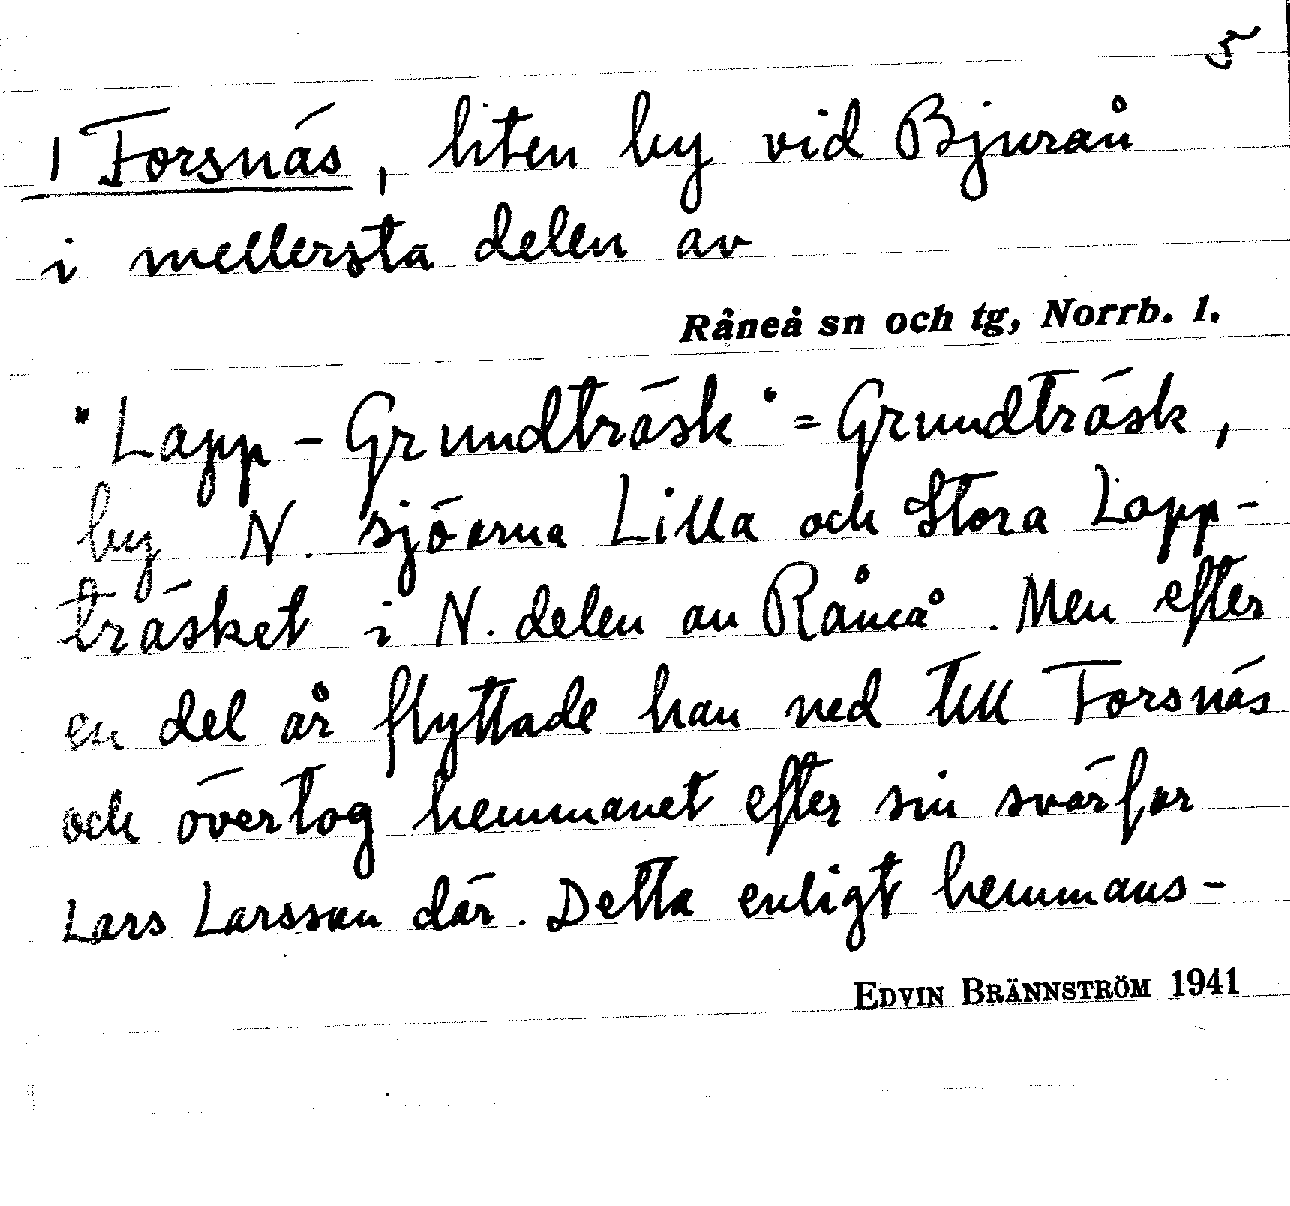 5
1 Forsnäs, liten by vid Bjurån
i mellersta delen av
Råneå sn och tg, Norrb. l.
"Lapp-Grundträsk" = Grundträsk,
by N. sjöarna Lilla och Stora Lapp-
träsket i N. delen av Råneå. Men efter
en del år flyttade han ned till Forsnäs
och övertog hemmanet efter sin svärfar
Lars Larsson där. Detta enligt hemmans-
EDVIN BRÄNNSTRÖM 1941